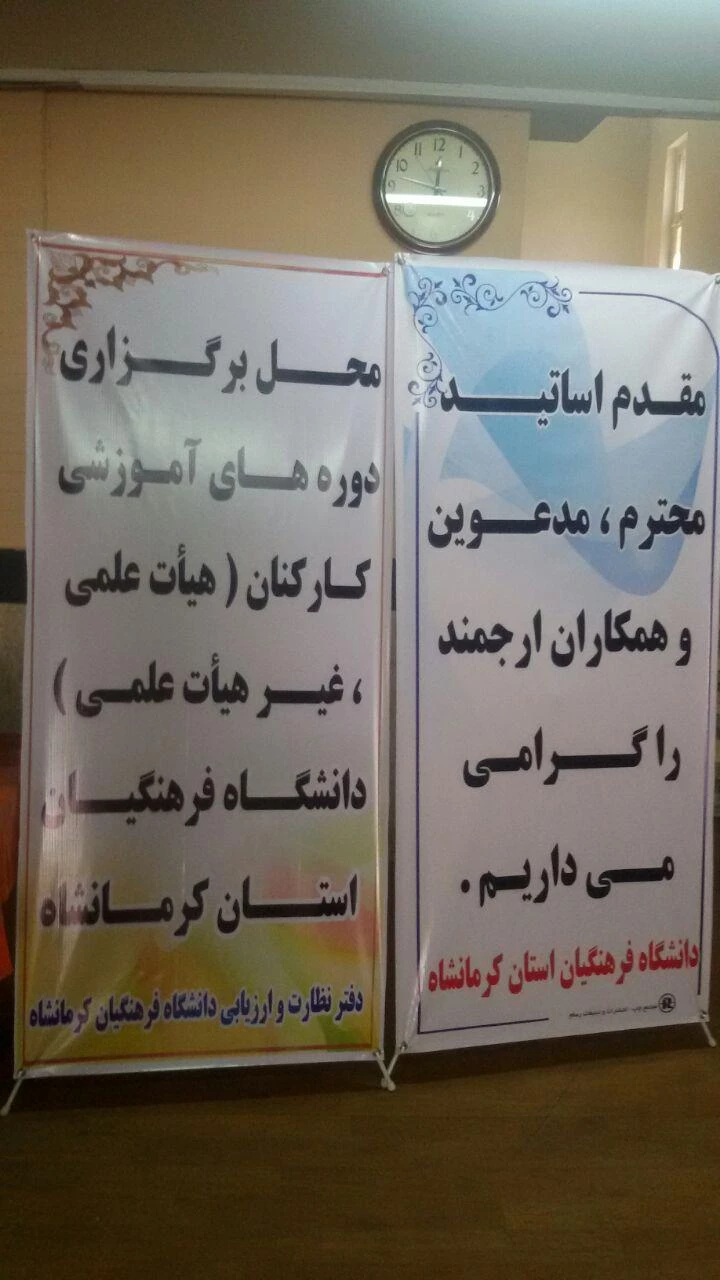 12
11
1
10
2
9
3
4
مقدم اساتید
محترم ، مدعوین
و همکاران ارجمند
را گرامی
می داریم .
دانشگاه فرهنگیان استان کرمانشاه
محل برگزاری
دوره های آموزشی
کارکنان ( هیأت علمی
، غیر هیأت علمی )
دانشگاه فرهنگیان
استان کرمانشاه
دفتر نظارت و ارزیابی دانشگاه فرهنگیان کرمانشاه